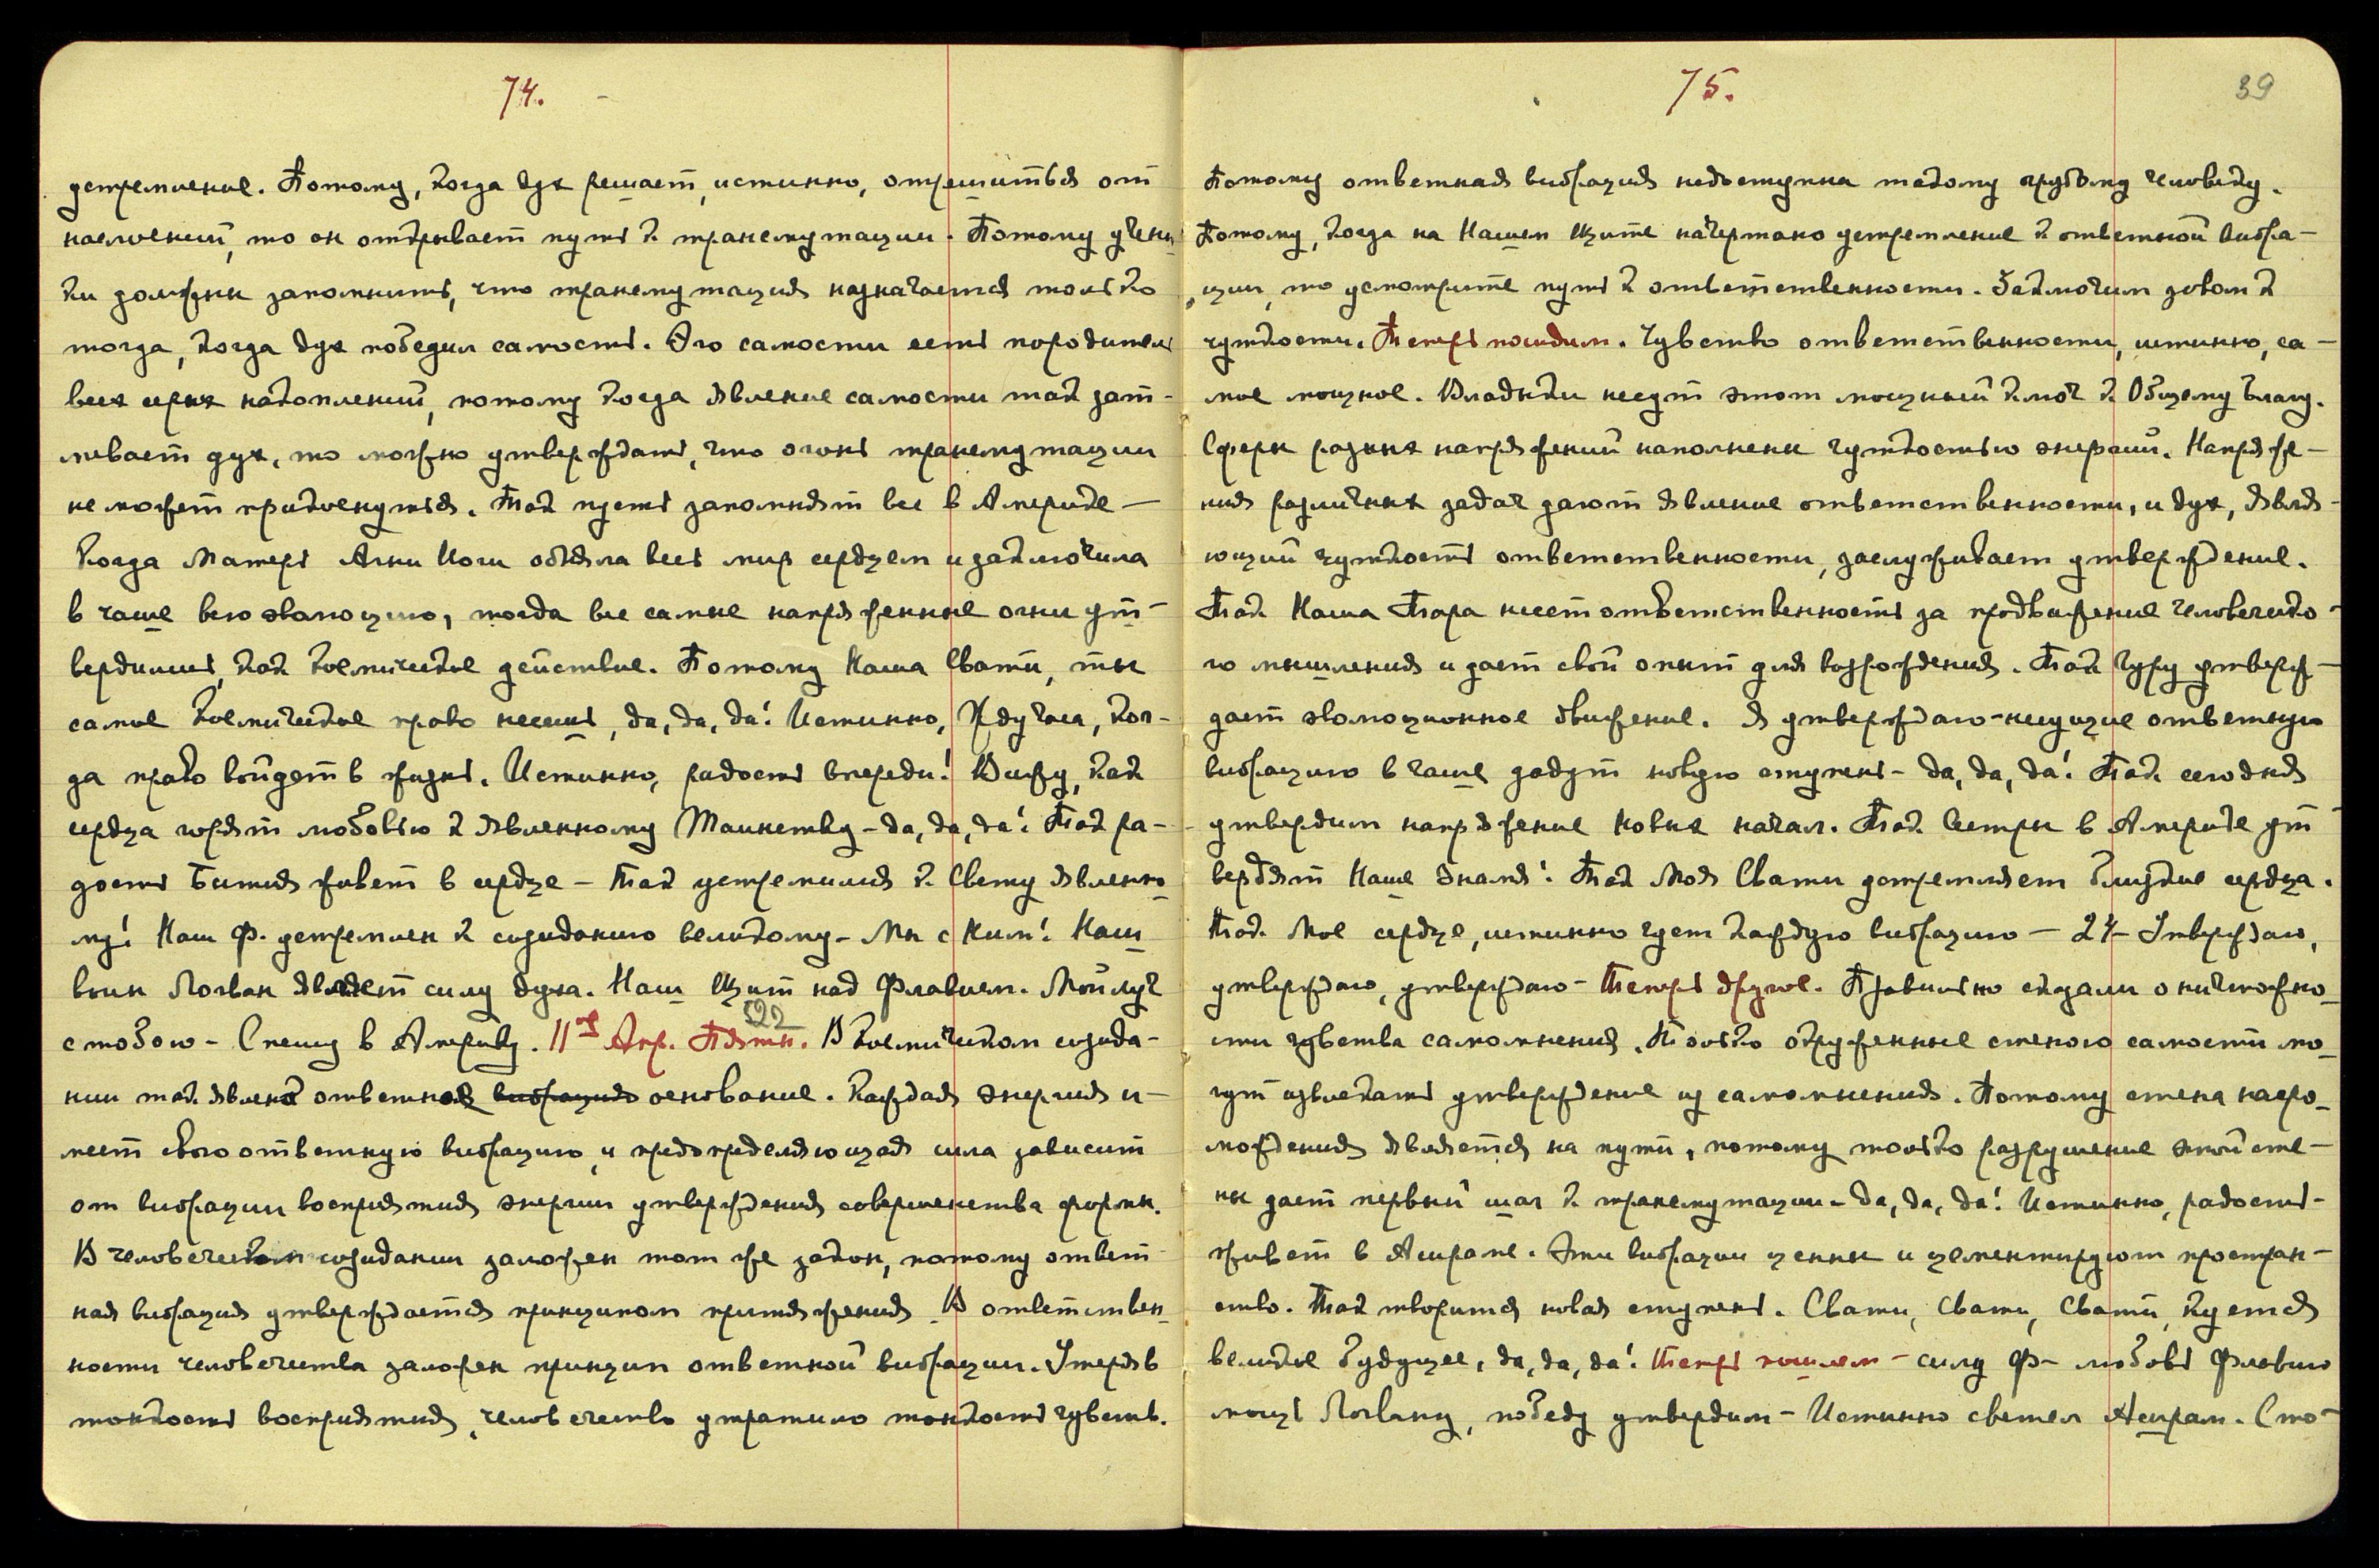 74.
устремление. Потому, когда дух решает, истинно, отрешиться от
наслоений, то он открывает путь к трансмутации. Потому учени
ки должны запомнить, что трансмутация назначается только
тогда, когда дух победил самость. Эго самости есть породитель
всех серых накоплений, потому когда явление самости так зат-
мевает дух, то можно утверждать, что огонь трансмутации
не может прикоснуться. Так пусть запомнят все в Америке —
Когда Матерь Агни Йоги объяла весь мир сердцем и заключила
в чаше всю эволюцию, тогда все самые напряженные огни ут-
вердились, как космическое действие. Потому Наша Свати, ты
самое космическое право несешь, да, да, да! Истинно, Жду часа, ког-
да право войдет в жизнь. Истинно, радость впереди! Вижу, как
сердца горят любовью к явленному Таинству - да, да, да! Так ра-
дость Бытия живет в сердце - Так устремимся к Свету явленно
му! Наш Ф. устремлен к созиданию великому - Мы с Ним! Наш
воин Логван являет силу духа. Наш Щит над Флавием. Мой луч
с тобою - Спешу в Америку. 11ое Апр. Пятн. В космическом созида-
522
нии так явлено ответное вибрация основание. Каждая энергия и-
меет свою ответную вибрацию, и предопределяющая сила зависит
от вибрации восприятия энергии утверждения совершенства формы.
В человеческом созидании заложен тот же закон, потому ответ-
ная вибрация утверждается принципом притяжения. В ответствен
ности человечества заложен принцип ответной вибрации. Утеряв
тонкость восприятия, человечество утратило тонкость чувств.
75.
39
Потому ответная вибрация недоступна такому грубому человеку.
Потому, когда на Нашем Щите начертано устремление к ответной вибра-
ции, то усмотрите путь к ответственности. Заключим зовом к
чуткости. Теперь посидим. Чувство ответственности, истинно, са-
мое мощное. Владыки несут этот мощный ключ к Общему Благу.
Сферы разных напряжений наполнены чуткостью энергий. Напряже-
ния различных задач дают явление ответственности, и дух, явля-
ющий чуткость ответственности, заслуживает утверждение.
Так Наша Тара несет ответственность за продвижение человеческо-
го мышления и дает свой опыт для возрождения. Так Гуру утверж-
дает эволюционное движение. Я утверждаю - несущие ответную
вибрацию в чаше дадут новую ступень - да, да, да! Так сегодня
утвердим напряжение новых начал. Так Сестры в Америке ут
вердят Наше Знамя! Так Моя Свати устремляет близкие сердца.
Так Мое сердце, истинно чует каждую вибрацию — 24 - Утверждаю,
утверждаю, утверждаю - Теперь другое. Правильно сказали о ничтожно
сти чувства самомнения. Только окруженные стеною самости мо
гут извлекать утверждение из самомнения. Потому стена нагро
мождения является на пути, потому только разрушение этой сте-
ны дает первый шаг к трансмутации - да, да, да! Истинно, радость-
живет в Ашраме. Эти вибрации ценны и цементируют простран-
ство. Так творится новая ступень. Свати, Свати, Свати, куется
великое будущее, да, да, да! Теперь пошлем - силу Ф- любовь Флавию
мощь Логвану, победу утвердим - Истинно светел Ашрам. Сто-